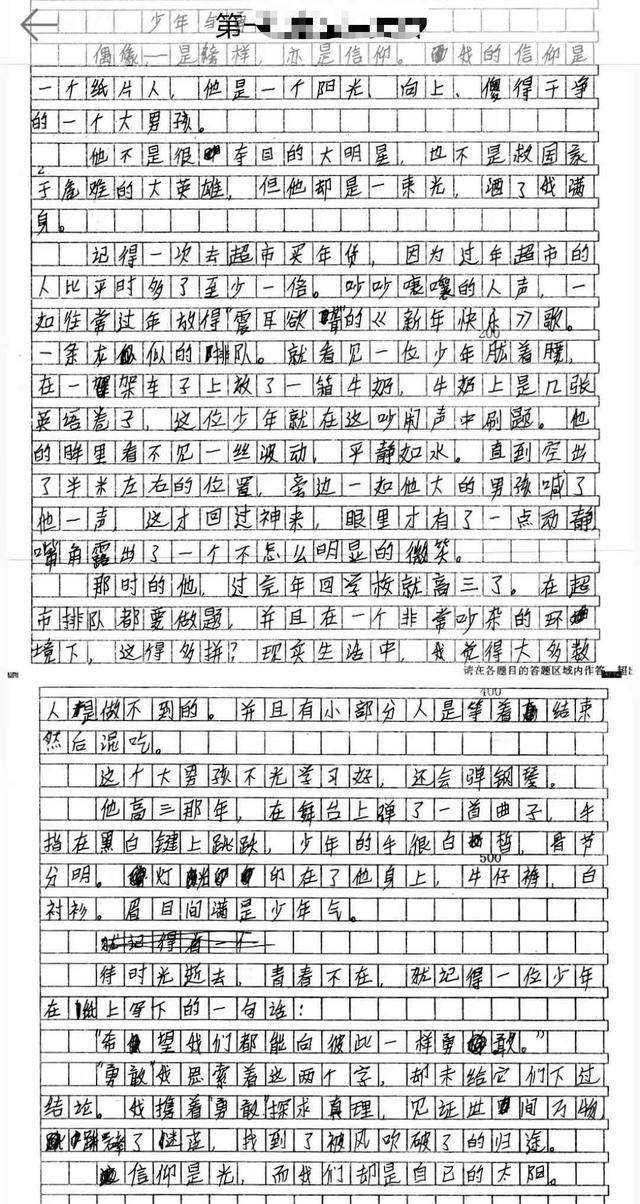 第一
少年与
偶像,一是榜样,亦是信仰。我的信仰是
一个纸片人,他是一个阳光,向上,傻得干净
的一个大男孩。
他不是很夺目的大明星,也不是救国家
2
于危难的大英雄,但他却是一束光,洒了我满
身。
记得一次去超市买年货,因为过年超市的
人比平时多了至少一倍。吵吵嚷嚷的人声,一
如往常过年放得"震耳欲聋"的《新年快乐》歌。
200
一条龙似的排队。就看见一位少年肱着腰,
在一架车子上放了一箱牛奶,牛奶上是几张
英语卷子,这位少年就在这吵闹声中刷题。他
的眸里看不见一丝波动,平静如水。直到空出
了半米左右的位置,旁边一如他大的男孩喊了
他一声,这才回过神来,眼里才有了一点动静
嘴角露出了一个不怎么明显的微笑。
那时的他,过完年回学校就高三了。在超
市排队都要做题,并且在一个非常吵杂的环
境下,这得多拼?现实生活中,我觉得大多数
请在各题目的答题区域内作答,超出
400
人是做不到的。并且有小部分人是等着结束
然后混吃。
这个大男孩不光学习好,还会弹钢琴。
他高三那年,在舞台上弹了一首曲子,手
挡在黑白键上跳跃,少年的手很白皙,骨节
500
分明。灯印在了他身上,牛仔裤,白
衬衫。眉目间满是少年气。
就记得有一个
待时光逝去,青春不在,就记得一位少年
在纸上写下的一句话:
"希望我们都能向彼此一样勇敢。"
"勇敢"我思索着这两个字,却未给它们下过
结论。我携着"勇敢"探求真理,见证世间万物
了迷茫,找到了被风吹破了的归途。
信仰是光,而我们却是自己的太阳。